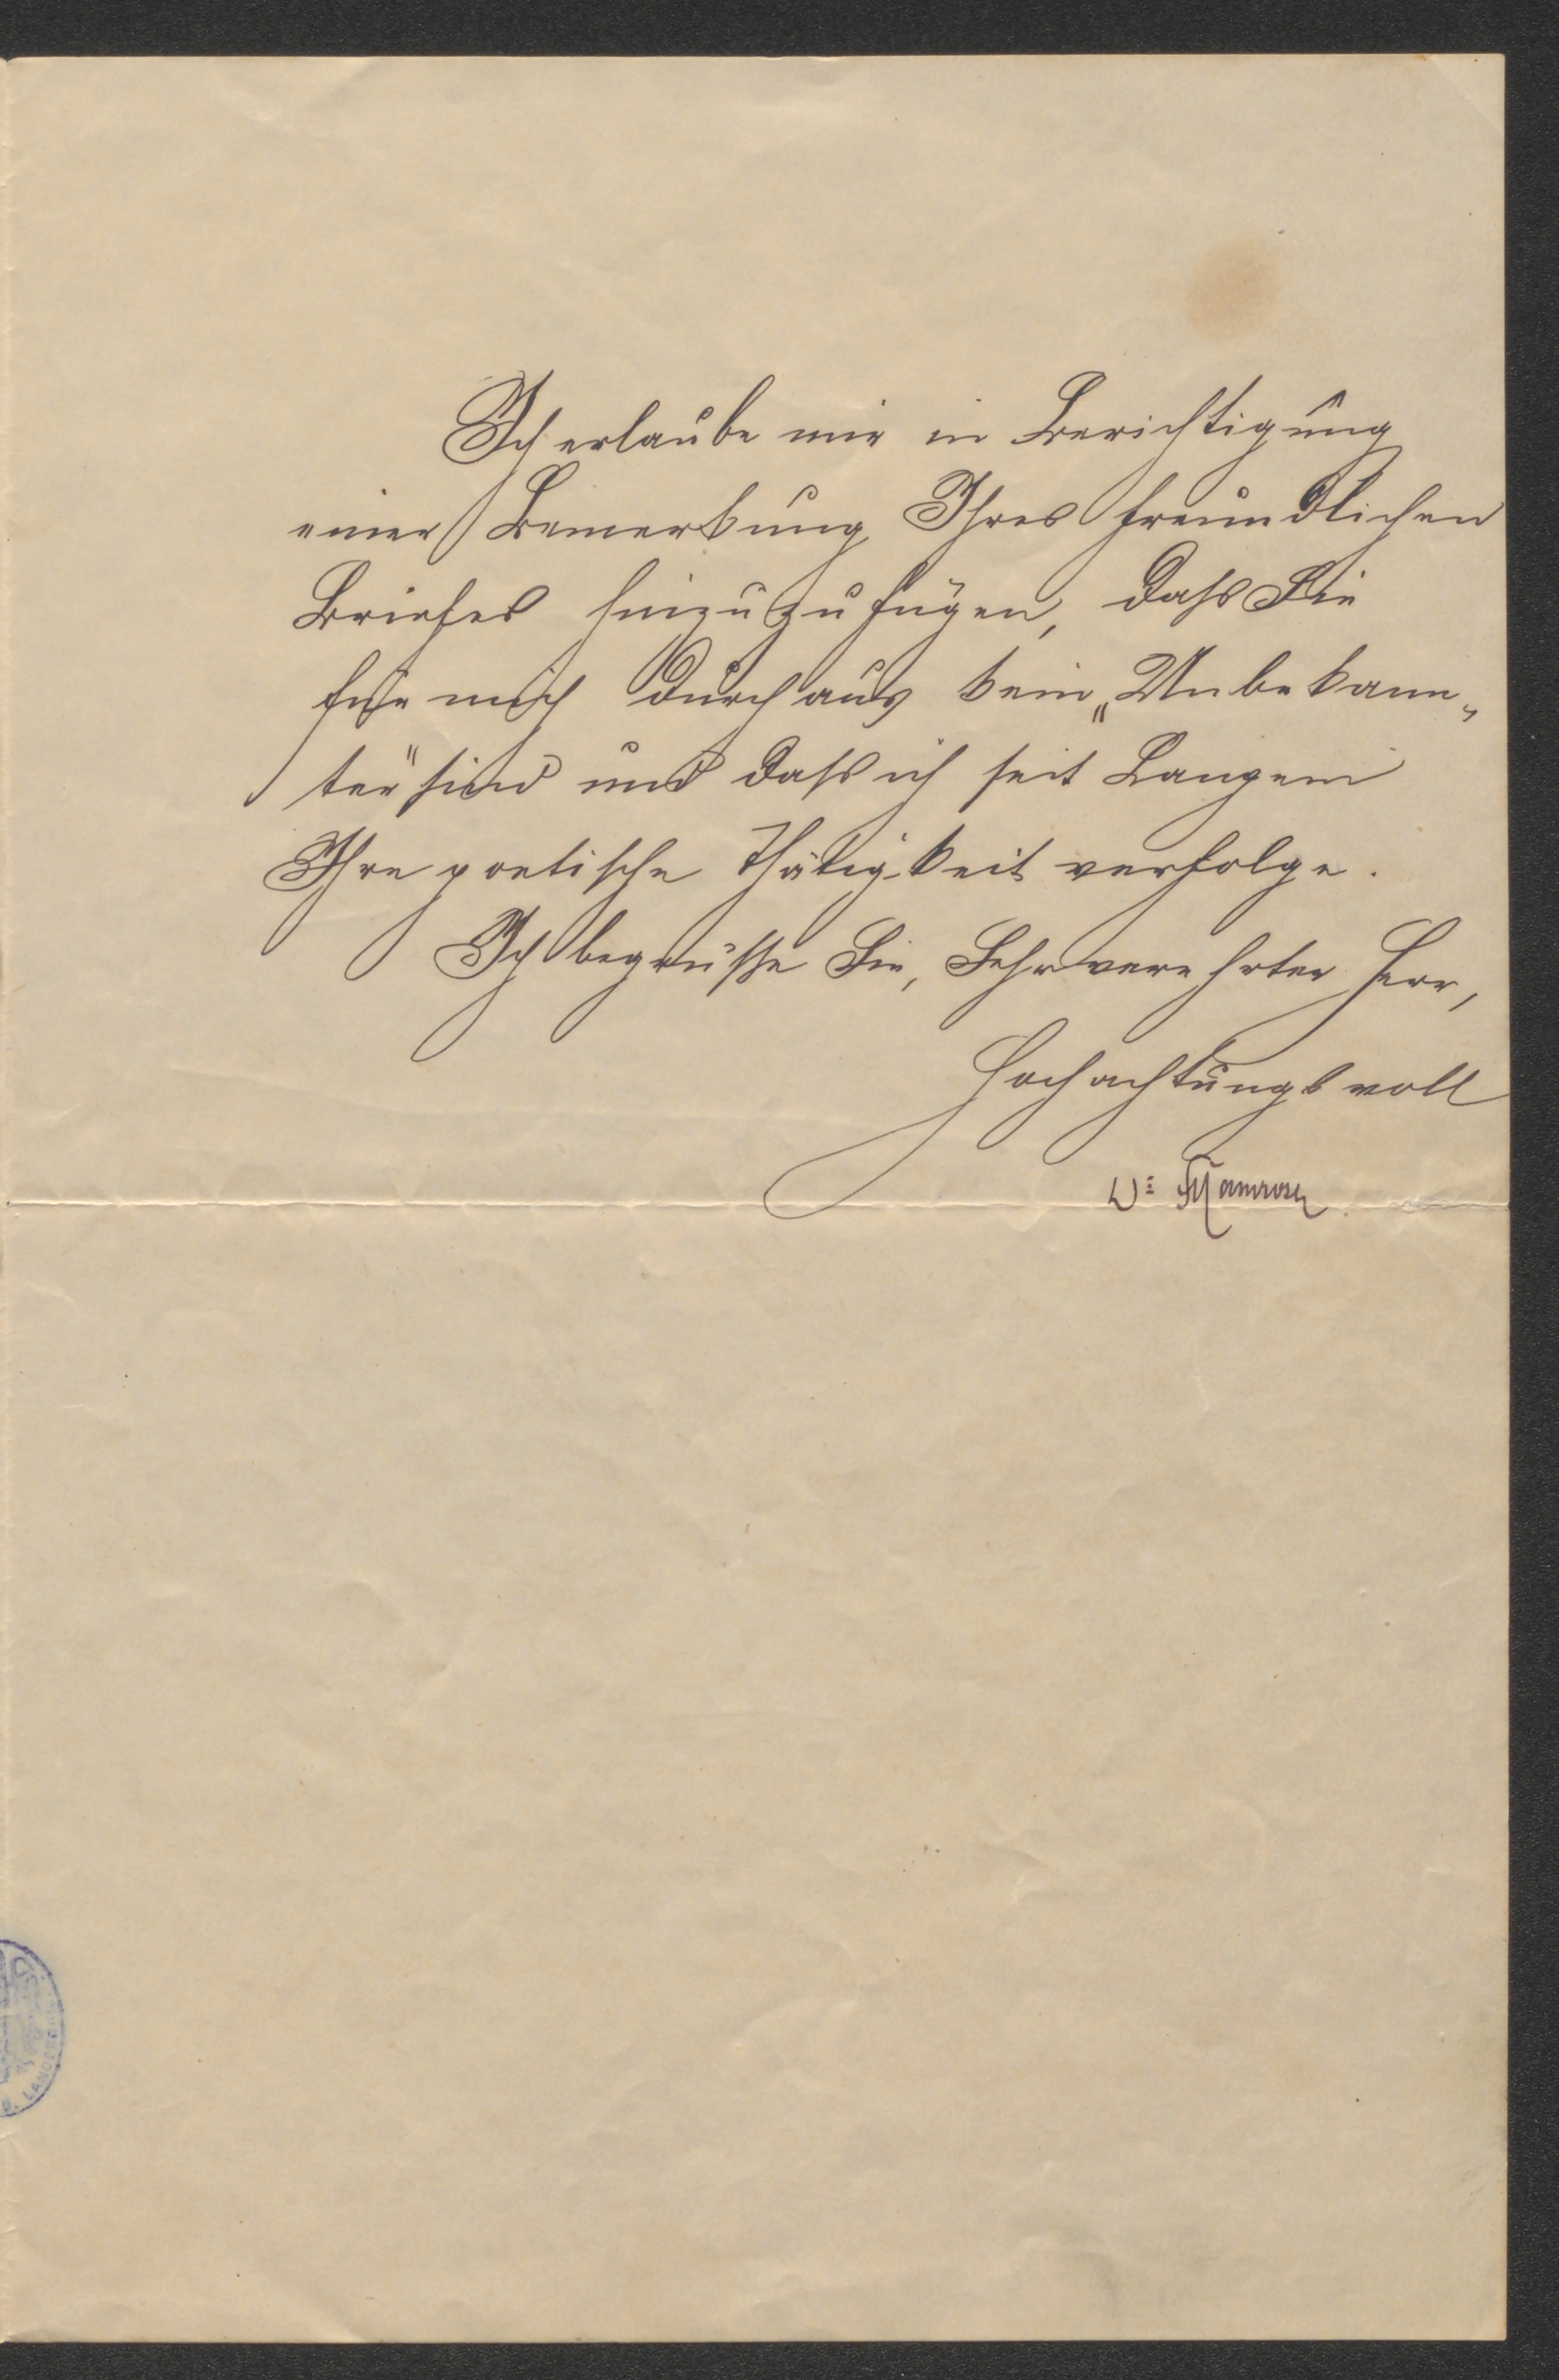 Ich erlaube mir in Berichtigung
einer Bemerkung Ihres freundlichen
Briefes hinzuzufügen, daß Sie
für mich durchaus kein „Unbekann-
ter“ sind und daß ich seit Langem
Ihre poetische Thätigkeit verfolge.
Ich begrüße Sie, Sehr verehrter Herr,
Hochachtungsvoll